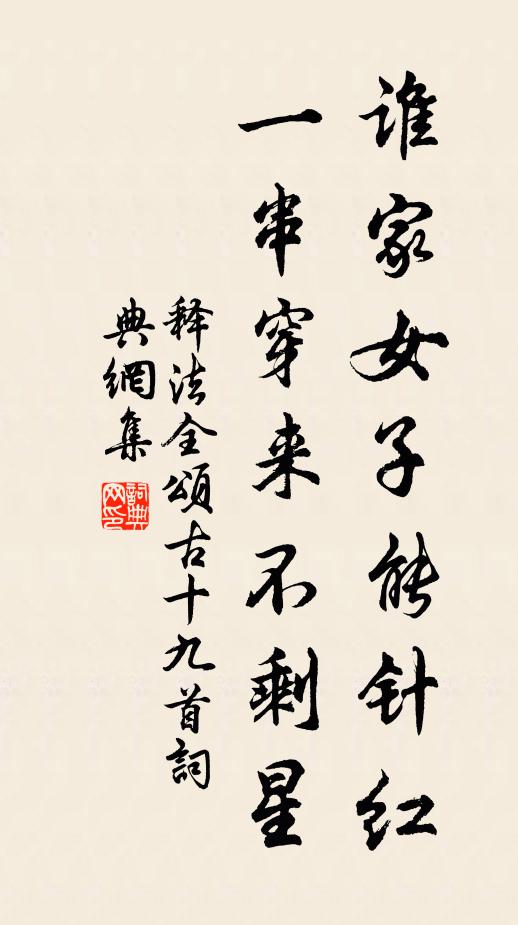 谁家女子能针红
一串穿来不剩星
释法全颂古十九首詞
典網集
詞典网印